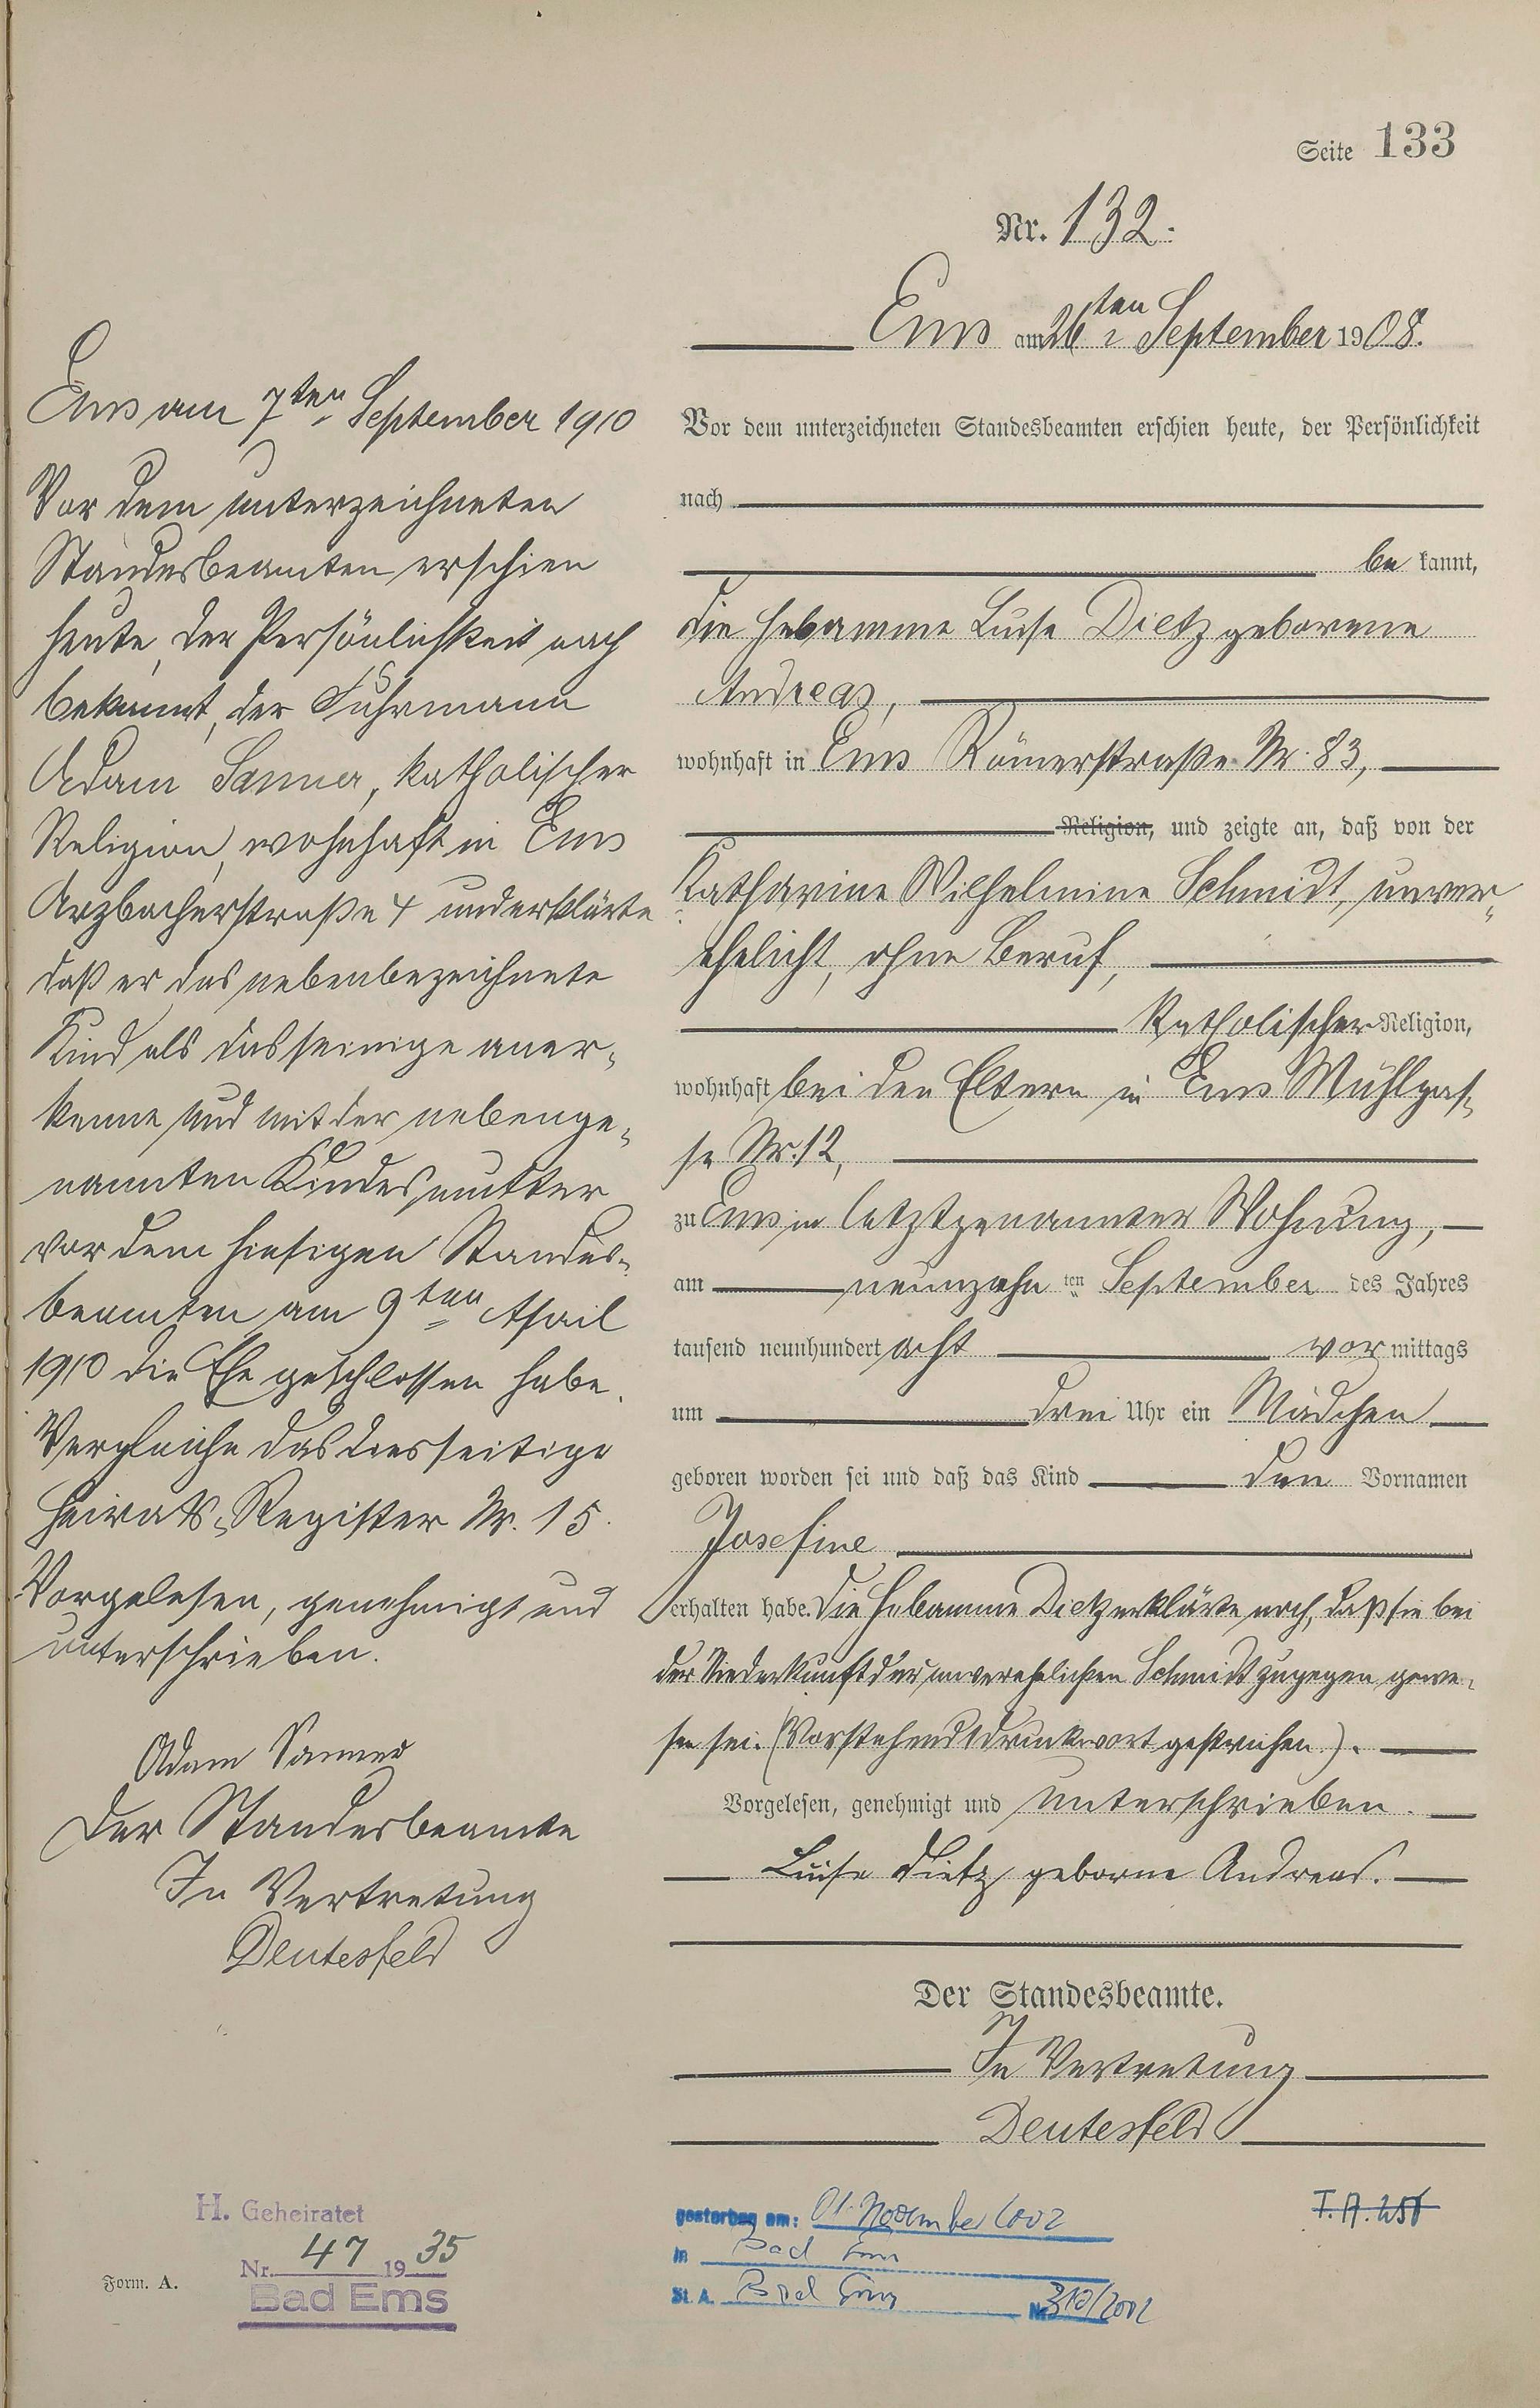 Seite 133
Nr. 132.
Ems am 26ten September 1908.
Vor dem unterzeichneten Standesbeamten erschien heute, der Persönlichkeit
nach
be kannt,
die Hebamme Luise Dietz geborene
Andreas,
wohnhaft in Ems Römerstraße Nr. 83,
Religion, und zeigte an, daß von der
Katharine Wilhelmine Schmidt, unver-
ehelicht, ohne Beruf,
katholischer Religion,
wohnhaft bei den Eltern in Ems Mühlgas-
se Nr. 12,
zu Ems in letztgenannter Wohnung,
am neunzehn ten September des Jahres
tausend neunhundert acht vor mittags
um drei Uhr ein Mädchen
geboren worden sei und daß das Kind den Vornamen
Josefine
erhalten habe. Die Hebamme Dietz erklärte noch, daß sie bei
der Niederkunft der unverehelichten Schmidt zugegen gewe-
sen sei. (Vorstehend 1 Druckwort gestrichen).
Vorgelesen, genehmigt und unterschrieben.
Luise Dietz geborne Andreas.
Der Standesbeamte.
In Vertretung
Deutesfeld
Ems am 7ten September 1910
Vor dem unterzeichneten
Standesbeamten erschien
heute, der Persönlichkeit nach
bekannt, der Fuhrmann
Adam Sanner, katholischer
Religion, wohnhaft in Ems
Arzbacherstraße 4 und erklärte
daß er das nebenbezeichnete
Kind als das seinige aner-
kenne und mit der nebenge-
nannten Kindesmutter
vor dem hiesigen Standes-
beamten am 9ten April
1910 die Ehe geschlossen habe.
Vergleiche das diesseitige
Heirats-Register Nr. 15.
Vorgelesen, genehmigt und
unterschrieben.
Adam Sanner
Der Standesbeamte
In Vertretung
Deutesfeld
H. Geheiratet
Nr. 47 1935
Bad Ems
Form. A.
gestorben am: 01. November 2002
in Bad Ems
St. A. Bad Ems Nr. 310/2002